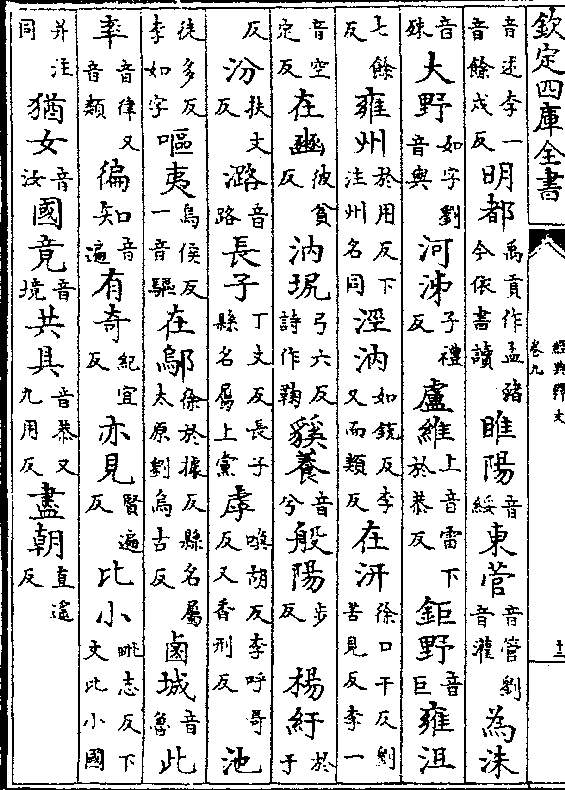 欽定四庫全書
經典釋文
卷九
十二
音述李一音餘戍反明都禹貢作孟豬今依書讀睢陽音綏東菅音管劉音灌為洙
音殊大野如字劉音與河泲子禮反盧維上音雷下於恭反鉅野音巨雍沮
七餘反雍州於用反下注州名同涇汭如銳反李又而類反在汧徐口干反劉苦見反李一
音空定反在豳彼貧反汭坭弓六反詩作鞫貕養音兮般陽步反楊紆於于
反汾扶文反潞音路長子丁丈反長子縣名屬上黨虖喚胡反李呼哥反又香刑反池
徒多反李如字嘔夷烏侯反一音驅在鄔徐於據反縣名屬太原劉烏古反鹵城音魯此
率音律又音類徧知音遍有奇紀宜反亦見賢遍反比小毗志反下文比小國
并注同猶女音汝國竟音境共具音恭又九用反盡朝直遙反